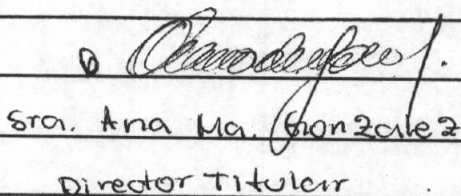 Sra. Ana Ma. Gonzalez
Director Titular